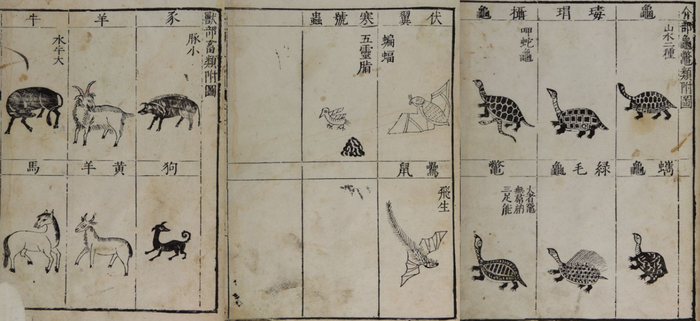 介部龜鱉類附圖
龜
山水二種
瑇瑁
攝龜
呷蛇龜
蠵龜
綠毛龜
鼈
大者黿
無裙納
三足能
伏翼
蝙蝠
寒號蟲
五靈脂
鸓鼠
飛生
獸部畜類附圖
豕
豚小
羊
牛
水牛大
狗
黃羊
馬